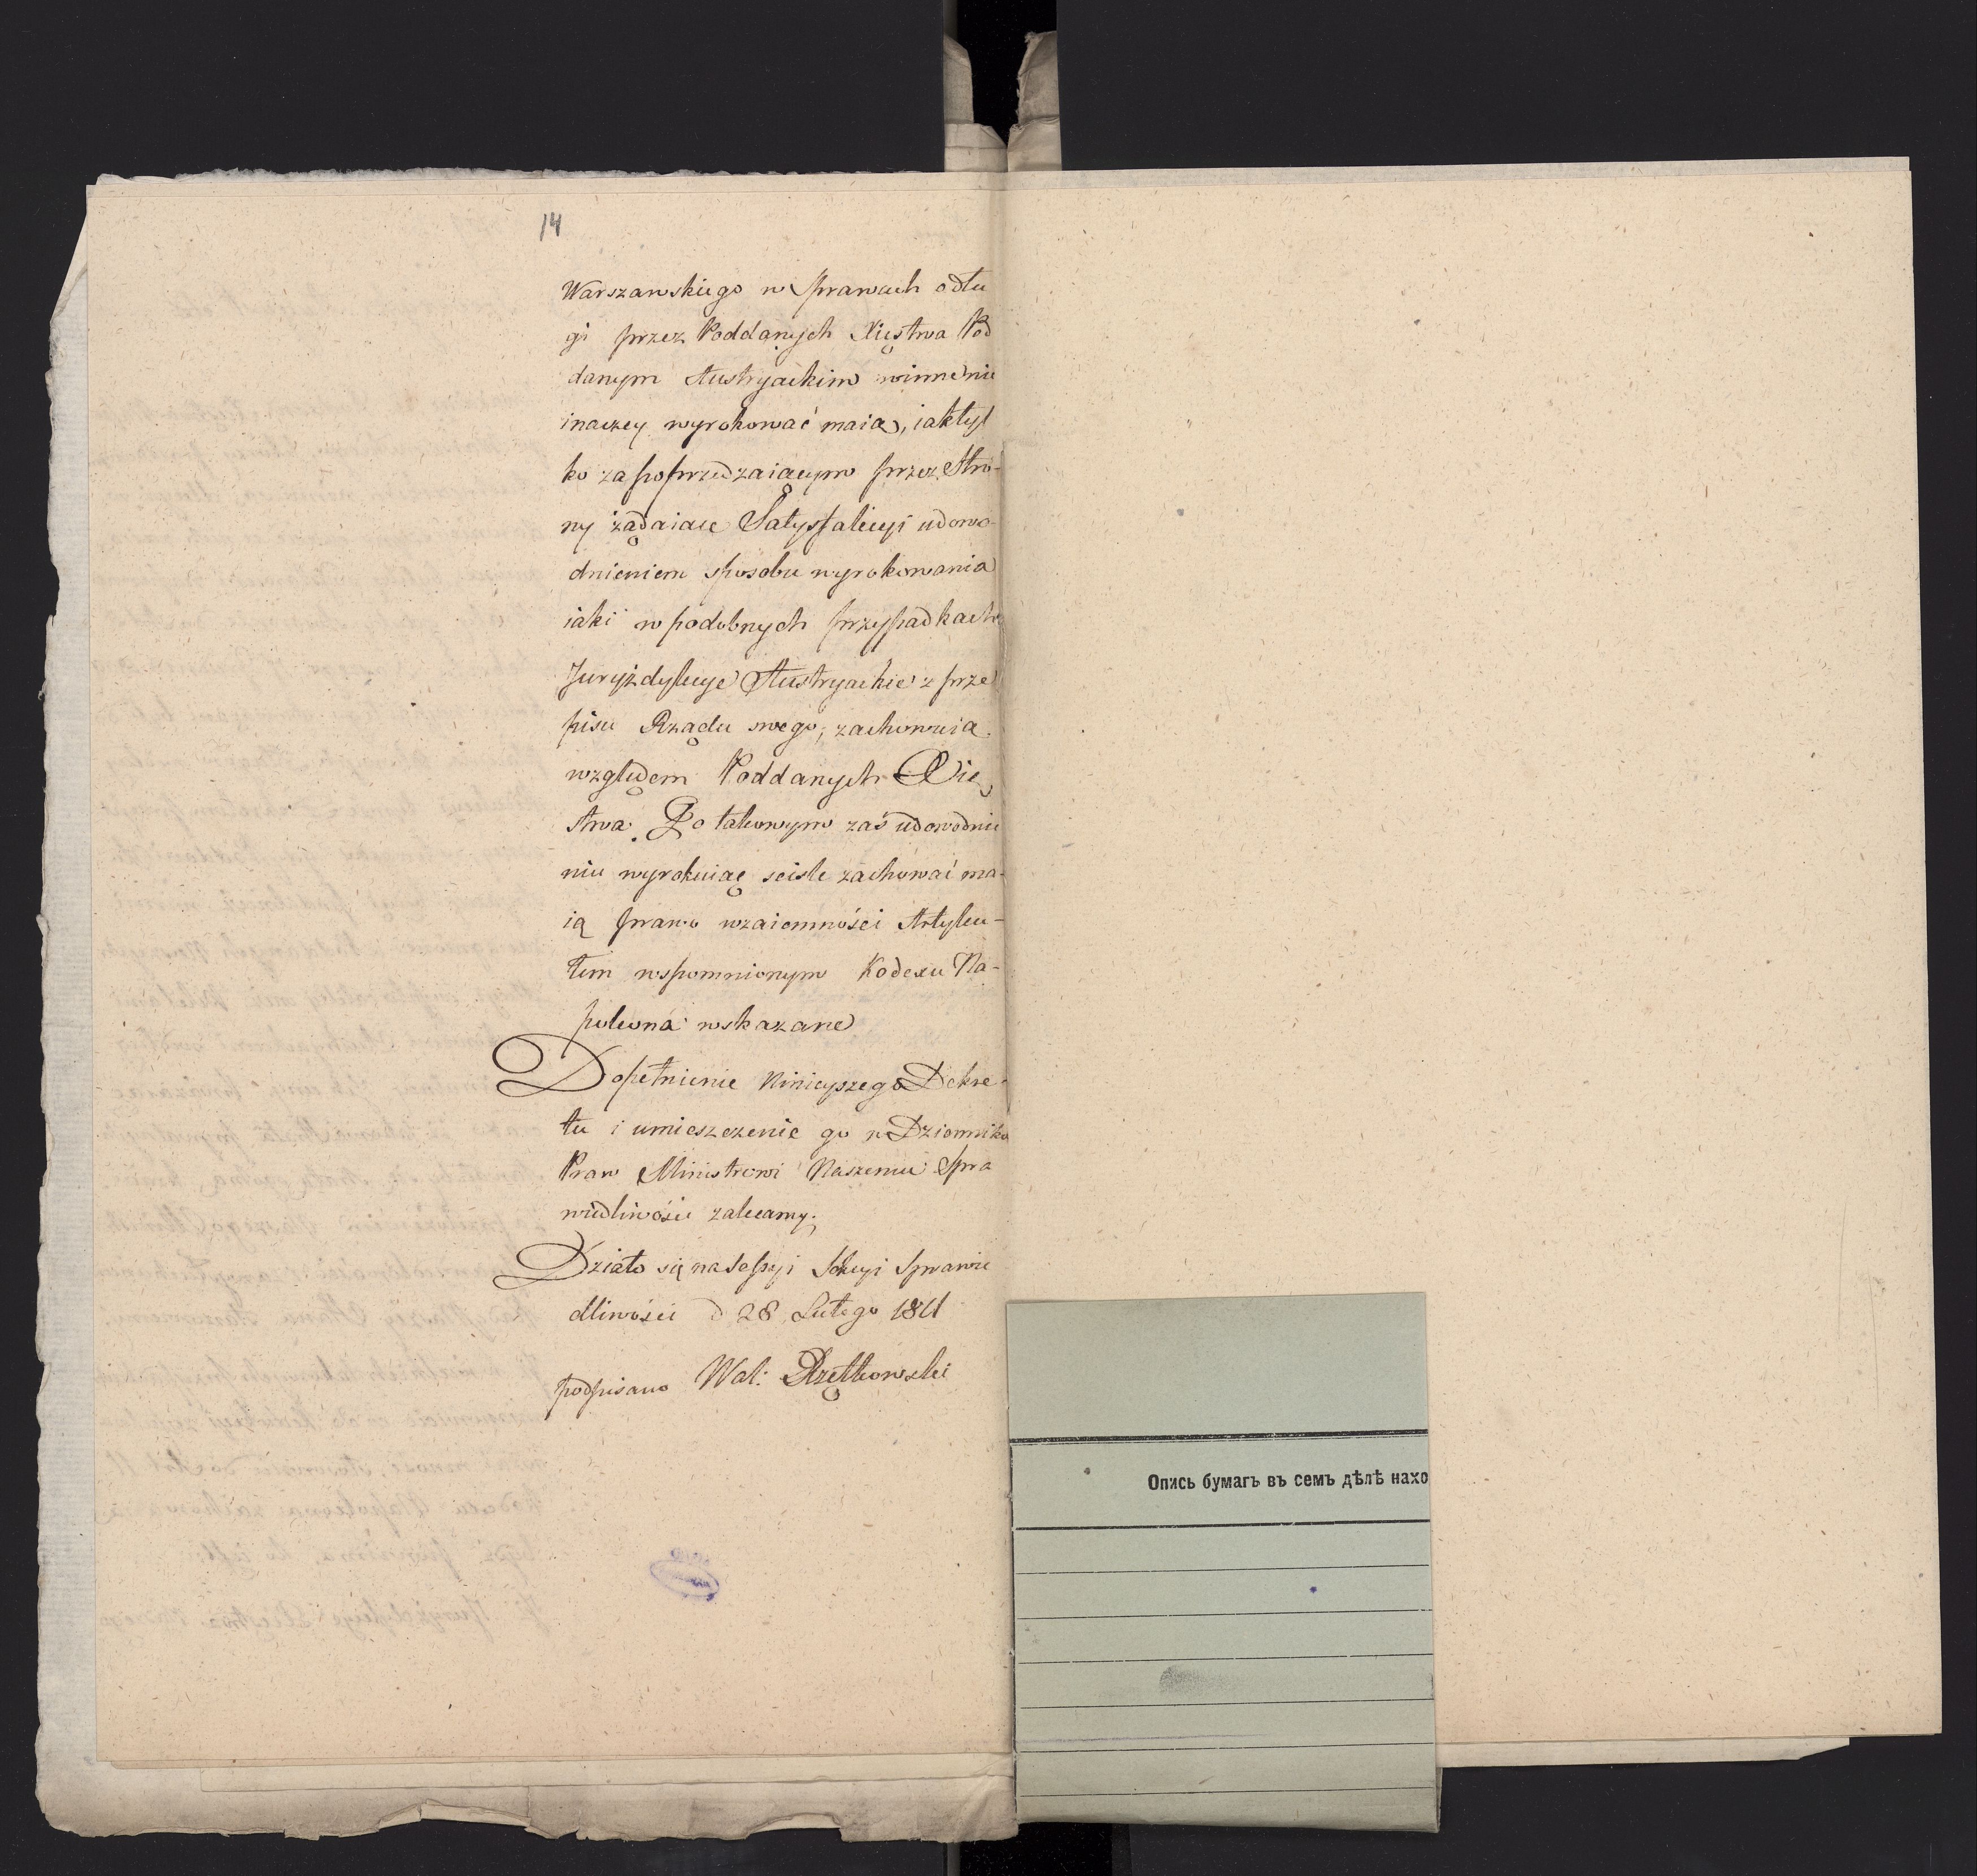 14
Warszawskiego w Sprawach o dłu
gi przez Poddanych Xięstwa Pod
danym Austryackim winne nie
inaczey wyrokować maią, iak tyl
ko za poprzedzaiącym przez Stro-
ny żądaiące Satysfakcyi udowo-
dnieniem sposobu wyrokowania
iaki w podobnych przypadkach
Juryzdykcye Austryackie z prze
pisu Rządu swego, zachowuią
względem Poddanych Xię
stwa. Po takowym zaś udowodnie
niu wyrokuiąc scisle zachować ma-
ią prawo wzaiemności Artyku-
łem wspomnionym Kodexu Na-
poleona wskazane
Dopełnienie Ninieyszego Dekre-
tu i umieszczenie go w Dzienniku
Praw Ministrowi Naszemu Spra
wiedliwości zalecamy.
Działo się na Sessyi Sekcyi Sprawie
dliwości d 28 Lutego 1811
podpisano Wal: Rzętkowski
Опись бумагъ въ семъ дѣлѣ нахо